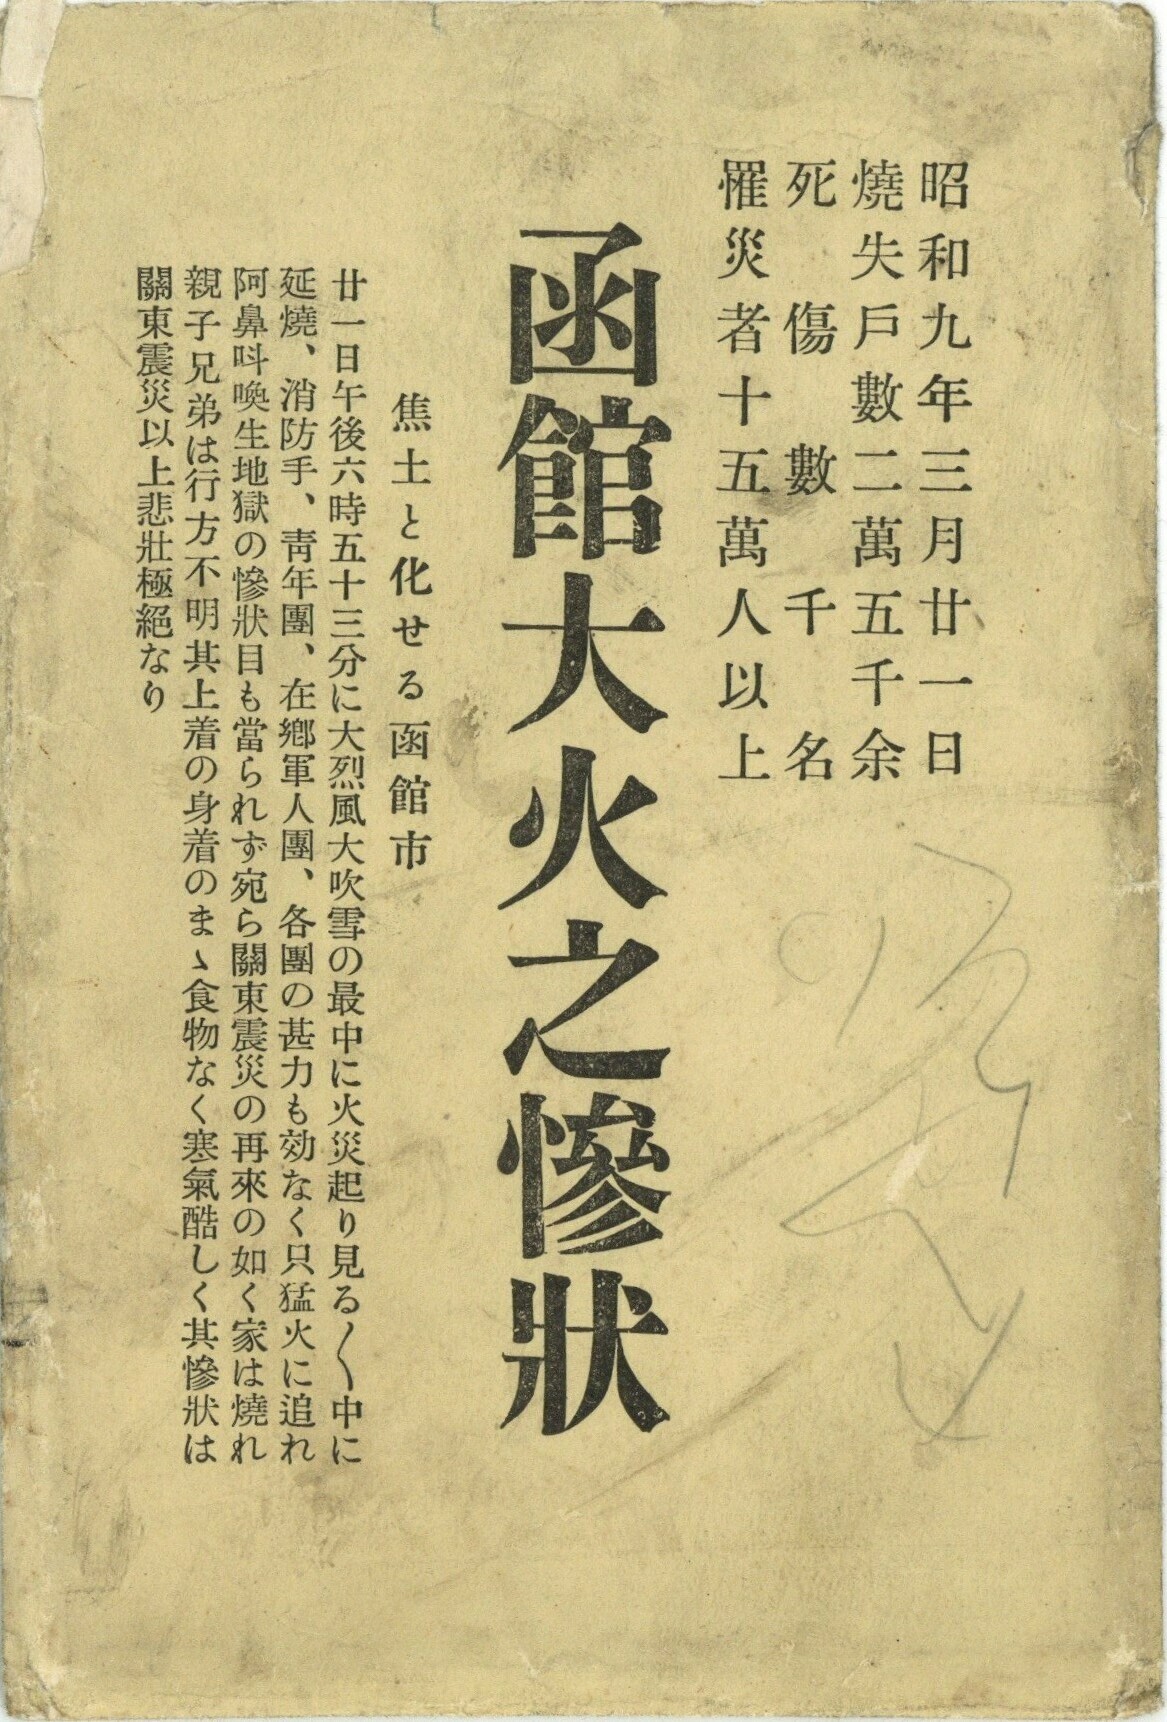 昭和九年三月廿一日
燒失戶數二萬五千余
死傷數千名
罹災者十五萬人以上
函館大火之慘狀
焦土と化せる函館市
廿一日午後六時五十三分に大烈風大吹雪の最中に火災起り見る〱中に
延燒、消防手、靑年團、在鄕軍人團、各團の甚力も効なく只猛火に追れ
阿鼻呌喚生地獄の慘狀目も當られず宛ら關東震災の再來の如く家は燒れ
親子兄弟は行方不明其上着の身着のまゝ食物なく寒氣酷しく其慘狀は
關東震災以上悲壯極絕なり